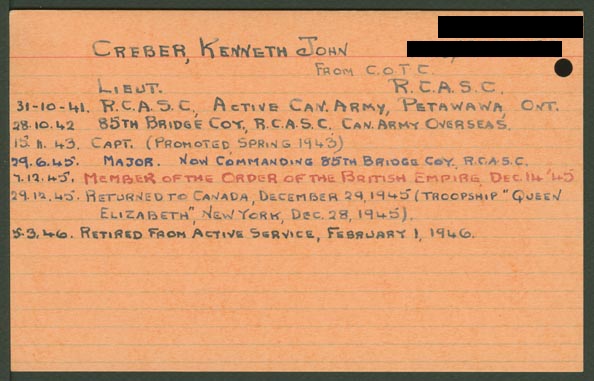 CREBER, KENNETH JOHN
FROM C.O.T.C.
LIEUT. R.C.A.S.C.
31-10-41. R.C.A.S.C., ACTIVE CAN. ARMY, PETAWAWA, ONT.
28.10.42 85TH BRIDGE COY., R.C.A.S.C. CAN. ARMY OVERSEAS.
15.11.43. CAPT. (PROMOTED SPRING 1943)
29.6.45. MAJOR. NOW COMMANDING 85TH BRIDGE COY, R.C.A.S.C.
7.12.45. MEMBER OF THE ORDER OF THE BRITISH EMPIRE, DEC. 14 '45
29.12.45. RETURNED TO CANADA, DECEMBER 29, 1945 (TROOPSHIP "QUEEN
ELIZABETH", NEW YORK, DEC. 28, 1945).
5.3.46. RETIRED FROM ACTIVE SERVICE, FEBRUARY 1, 1946.